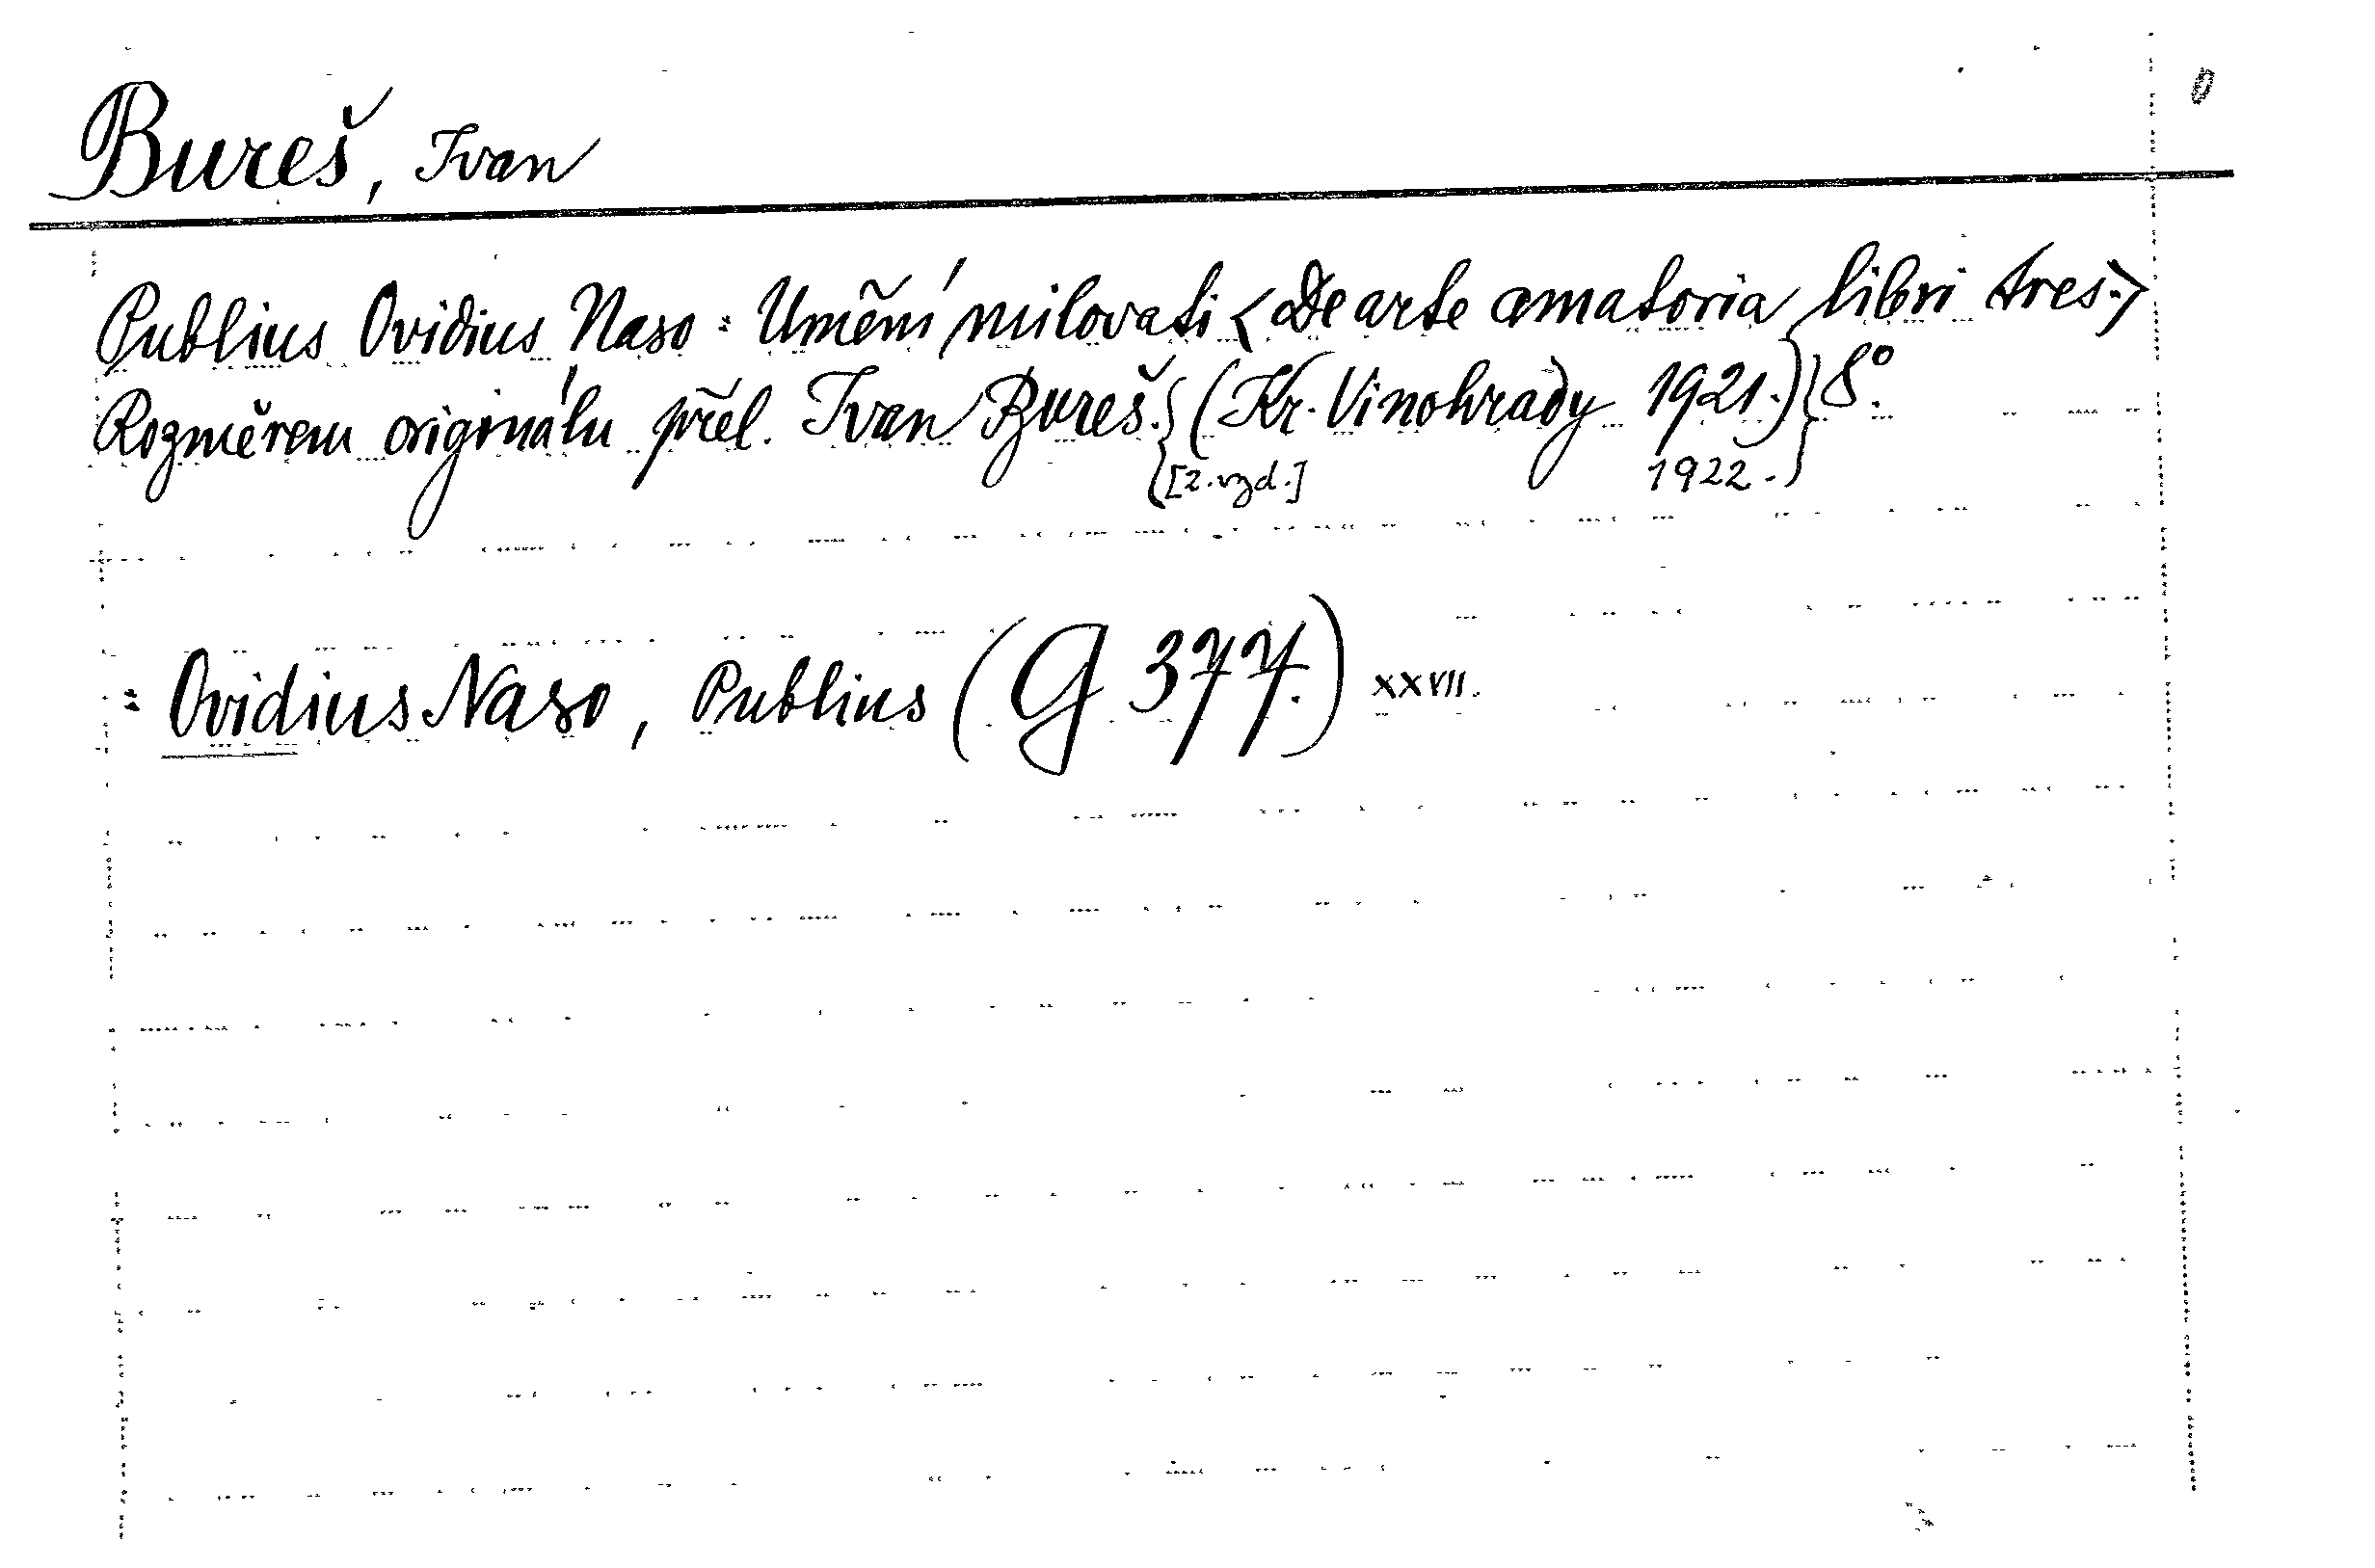 Bureš, Ivan
Publius Ovidius Naso: Umění milovati <De arte amatoria libri tres.>
Rozměrem originálu přel. Ivan Bureš. {(Kr. Vinohrady 1921.)} 8°.
[2. vyd.] 1922.
= Ovidius Naso, Publius (G 377.) XXVII.